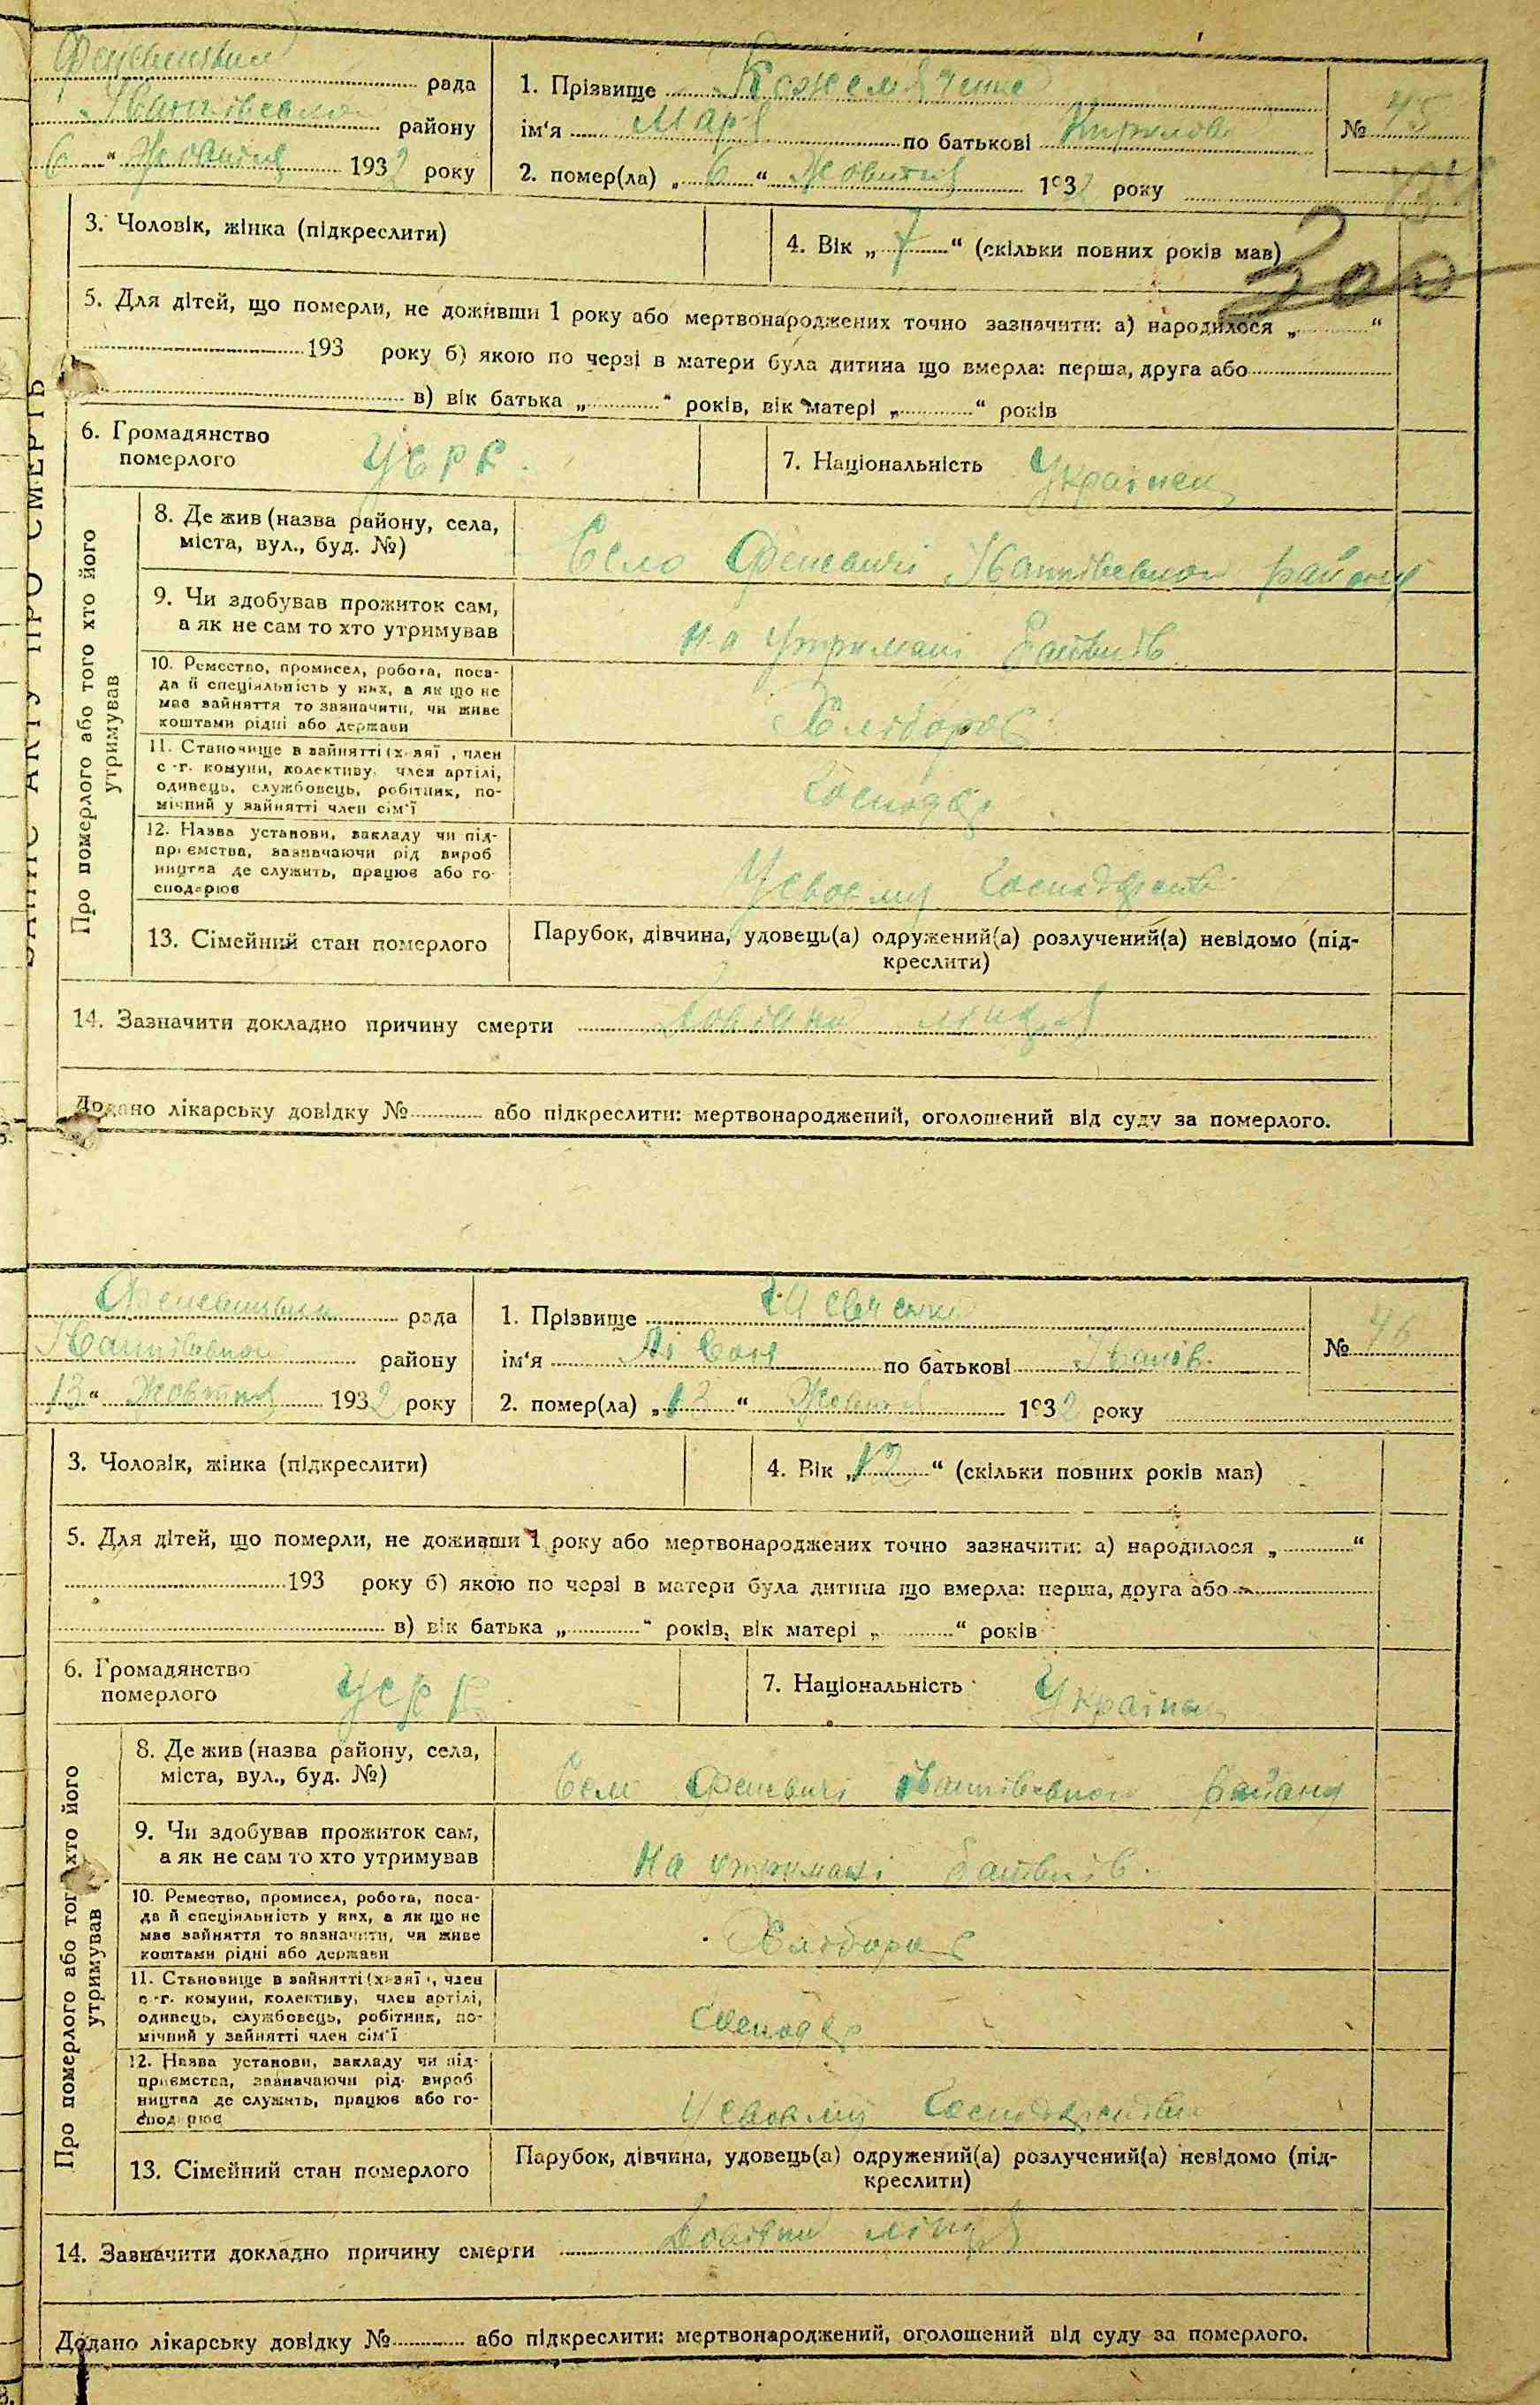 рада
району
6 " Жовтня 1932 року
1. Прізвище Кожемяченко
ім'я Марія по батькові Кирилов
2. помер(ла) „ 6 " Жовтня 1932 року
№ 45
200
3. Чоловік, жінка (підкреслити)
4. Вік „ 7 " (скільки повних років мав)
5. Для дітей, що померли, не доживши 1 року або мертвонароджених точно зазначити: а) народилося „ "
193 року б) якою по черзі в матери була дитина що вмерла: перша, друга або
в) вік батька „ " років, вік матері „ " років
6. Громадянство
померлого
УСРР.
7. Національність Українец
ЗАПИС АКТУ ПРО СМЕРТЬ
Про померлого або того хто його
утримував
8. Де жив (назва району, села,
міста, вул., буд. №)
Село Феневичі району
9. Чи здобував прожиток сам,
а як не сам то хто утримував
на утримані батьків
10. Ремество, промисел, робота, поса-
да й спеціяльність у них, а як що не
має зайняття то зазначити, чи живе
коштами рідні або держави
Хлібороб
11. Становище в зайнятті (хазяї , член
с.-г. комуни, колективу, член артілі,
одивець, службовець, робітник, по-
мічний у зайнятті член сім'ї
Господар
12. Назва установи, закладу чи під-
приємства, зазначаючи рід вироб
ництва де служить, працює або го-
сподарює
У своєму Господарстві
13. Сімейний стан померлого
Парубок, дівчина, удовець(а) одружений(а) розлучений(а) невідомо (під-
креслити)
14. Зазначити докладно причину смерти
Додано лікарську довідку № або підкреслити: мертвонароджений, оголошений від суду за померлого.
рада
району
13 " Жовтня 1932 року
1. Прізвище Шевченко
ім'я по батькові Іванів.
2. помер(ла) „ 13 " Жовтня 1932 року
№ 46
3. Чоловік, жінка (підкреслити)
4. Вік „ 12 " (скільки повних років мав)
5. Для дітей, що померли, не доживши 1 року або мертвонароджених точно зазначити: а) народилося „ "
193 року б) якою по черзі в матери була дитина що вмерла: перша, друга або
в) вік батька „ " років, вік матері „ " років
6. Громадянство
померлого
УСРР
7. Національність Українец
Про померлого або того хто його
утримував
8. Де жив (назва району, села,
міста, вул., буд. №)
Село Феневичі району
9. Чи здобував прожиток сам,
а як не сам то хто утримував
на утримані батьків.
10. Ремество, промисел, робота, поса-
да й спеціяльність у них, а як що не
має зайняття то зазначити, чи живе
коштами рідні або держави
Хлібороб
11. Становище в зайнятті (хазяї , член
с.-г. комуни, колективу, член артілі,
одивець, службовець, робітник, по-
мічний у зайнятті член сім'ї
Господар
12. Назва установи, закладу чи під-
приємства, зазначаючи рід вироб
ництва де служить, працює або го-
сподарює
У своєму Господарстві
13. Сімейний стан померлого
Парубок, дівчина, удовець(а) одружений(а) розлучений(а) невідомо (під-
креслити)
14. Зазначити докладно причину смерти
Додано лікарську довідку № або підкреслити: мертвонароджений, оголошений від суду за померлого.